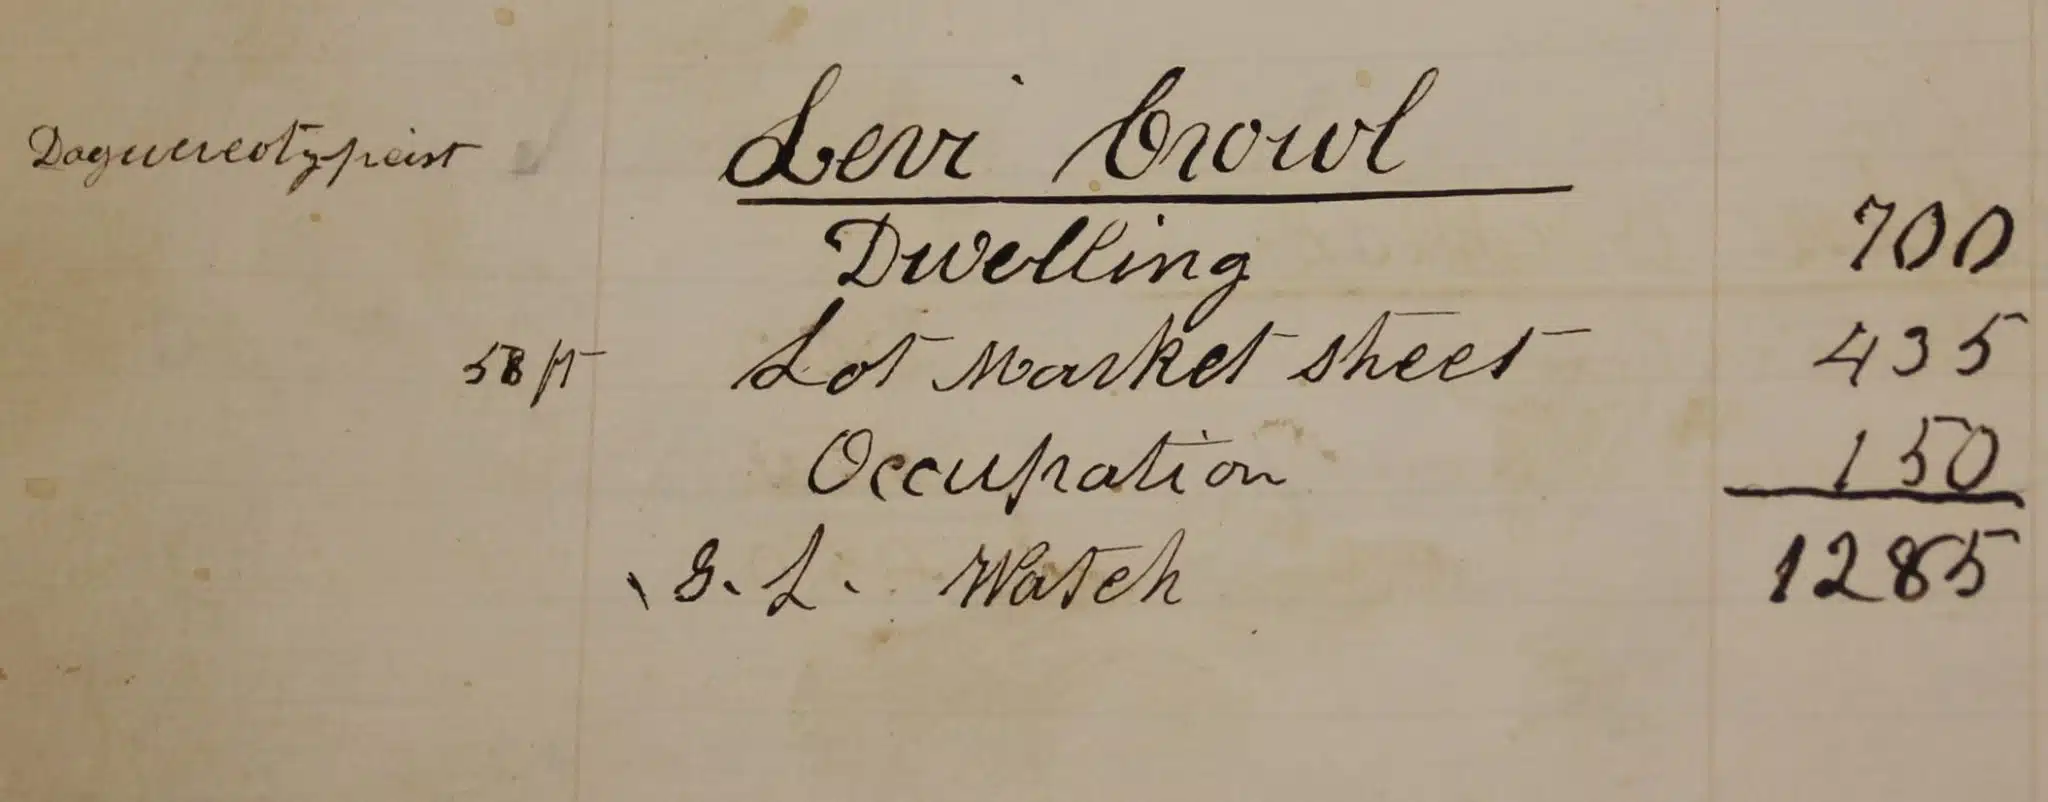 Daguereotypeist Levi Crowl
Dwelling 700
58 ft Lot Market street 435
Occupation 150
1285
G. L. Watch